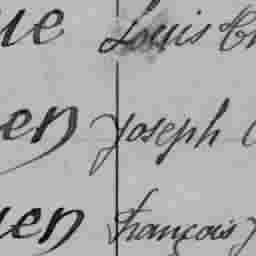 ue Louis
en Joseph
uen François